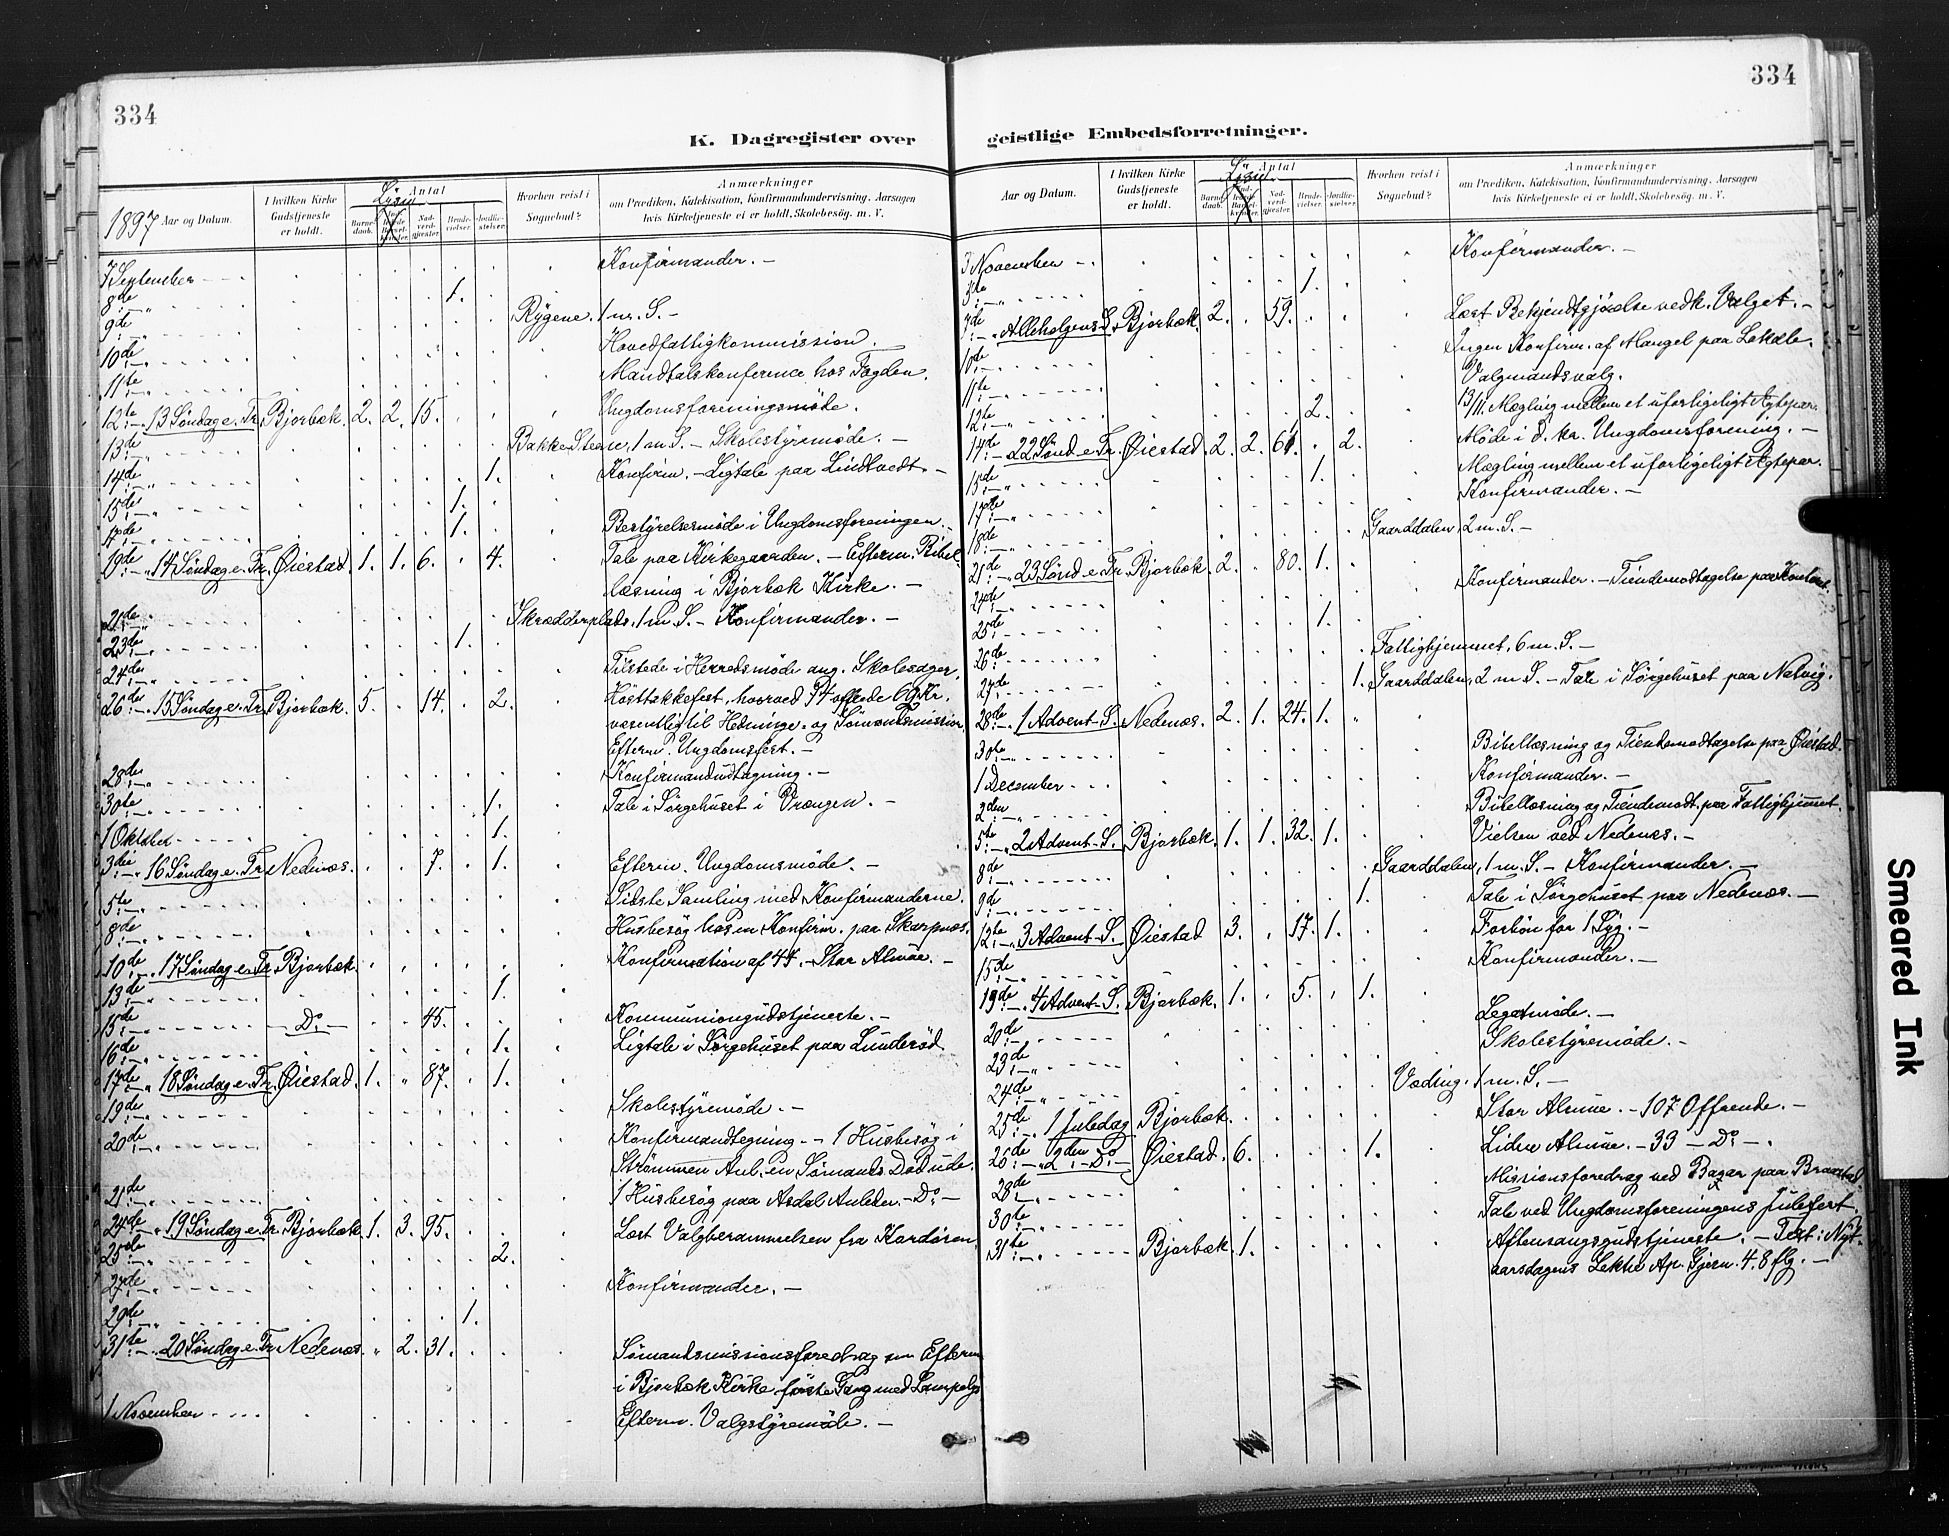 334
K. Dagregister over
1897 Aar og Datum.
I hvilken Kirke Gudstjeneste er holdt.
Antal
Lysn.
Barne-daab.
Nad-verd-gjester.
Brude-vielser.
Jordfæ-stelser.
Hvorhen reist i Sognebud?
Anmærkninger
om Prædiken, Katekisation, Konfirmandundervisning. Aarsagen
hvis Kirketjeneste ei er holdt, Skolebesøg. m. V.
7 September - - - Konfirmander. -
8de " 1.
9de " Rygene. 1 m. S. -
10de Hovedfattigkommission.
11te Mandtalskonference hos Fogden.
12te - 13 Søndag e. Tr. Bjorbæk. 2. 2. 15. Ungdomsforeningsmøde.
13de Bakke 1 m. S. - Skolestyremøde. -
14de " 1. Konfirm. - Ligtale paa Lindtvedt. -
15de " 1.
17de " 1. Bestyrelsesmøde i Ungdomsforeningen.
19de - " 14 Søndag e. Tr. Øiestad. 1. 1. 6. 4. Tale paa Kirkegaarden. - Efterm. Bibel-
læsning i Bjorbæk Kirke. -
21de " Skrædderplads, 1 m. S. - Konfirmander. -
23de 1.
24de Tilstede i Herredsmøde ang. Skolesager.
26de " 15 Søndag e. Tr. Bjorbæk. 5. 14. 2. Høsttakkefest, hvorved 74 ofrede 69 Kr.
væsentlig til Hedninge- og Sømandsmission
Efterm. Ungdomsfest. -
28de Konfirmandudtagning. -
30te 1. Tale i Sørgehuset i Vrængen. -
1 Oktober 1.
3die " 16 Søndag e. Tr. Nedenæs. 7. 1. Efterm. Ungdomsmøde. -
5te Sidste Samling med Konfirmanderne.
8de Husbesøg hos en Konfirm. paa Skarpnæs.
10de " 17 Søndag e. Tr. Bjorbæk. Konfirmation af 44. - Stor Almue. -
13de " 1.
15de " - Do - 45. Kommuniongudstjeneste. -
16de 1. Ligtale i Sørgehuset paa Lunderød.
17de " 18 Søndag e. Tr. Øiestad. 1. " 87. 1.
19de Skolestyremøde. -
20de Konfirmandtegning. - 1 Husbesøg i
Strømmen Anl. en Sømands Død ude.
21de 1 Husbesøg paa Asdal Anleden - Do -
24de " 19 Søndag e. Tr. Bjorbæk. 1. 3. 95. Læst Valgberammelsen fra Kordøren.
25de 2.
27de Konfirmander. -
29de " 1.
31te " 20 Søndag e. Tr. Nedenæs. " 2. 31. Sømandsmissionsforedrag om Efterm
i Bjorbæk Kirke første Gang med Lampelys
1 November Efterm. Valgstyremøde. -
334
geistlige Embedsforretninger.
Aar og Datum.
I hvilken Kirke Gudstjeneste er holdt.
Antal
Lysn.
Barne-daab.
Nad-verd-gjester.
Brude-vielser.
Jordfæ-stelser.
Hvorhen reist i Sognebud?
Anmærkninger
om Prædiken, Katekisation, Konfirmandundervisning. Aarsagen
hvis Kirketjeneste ei er holdt, Skolebesøg. m. V.
3 November - Konfirmander. -
5te 1.
7de " Allehelgens S. Bjorbæk. 2. 59. Læst Bekjendtgjørelse vedk. Valget. -
10de Ingen Konfirm. af Mangel paa Lokale.
11te Valgmandsvalg.
12te 2. 13/11. Mægling mellem et uforligeligt Ægtepar.
14de - 22 Sønd e. Tr. Øiestad. 2. 2. 61. 2. Møde i d. kr. Ungdomsforening. -
15de " 1. Mægling mellem et uforligeligt Ægtepar.
17de " Konfirmander. -
18de Gaarddalen, 2 m. S. -
21de - 23 Sønd e. Tr. Bjorbæk. 2. 80. 1.
24de Konfirmander. - Tiendemodtagelse paa Kontoret.
25de 1.
26de Fattighjemmet, 6 m. S. -
27de 1. Gaarddalen, 2 m. S. - Tale i Sørgehuset paa Natvig.
28de " 1 Advent-S. Nedenæs. 2. 1. 24. 1.
30te Bibellæsning og Tiendemodtagelse paa Øiestad.
1 December Konfirmander. -
2den Bibellæsning og Tiendemodt. paa Fattighjemmet.
5te " 2 Advent-S. Bjorbæk. 1. 1. 32. 1. Vielsen ved Nedenæs. -
8de Gaarddalen, 1 m. S. - Konfirmander. -
9de 1. Tale i Sørgehuset paa Nedenæs. -
12te " 3 Advent-S. Øiestad 3. 17. 1. Forbøn for 1 Syg. -
15de Konfirmander. -
19de " 4 Advent-S. Bjorbæk. 1. 5. 1.
20de Legatmøde. -
23de Skolestyremøde. -
24de Vedsug. 1 m. S. -
25de " 1 Juledag Bjorbæk. Stor Almue. - 107 Offrende. -
26de " 2den - Do - Øiestad. 6. 1. Liden Almue. - 33 - Do - .
28de Missionsforedrag ved Bazar paa Braastad.
30te Tale ved Ungdomsforeningens Julefest.
31te Bjorbæk 1. Aftensangsgudstjeneste. - Text: Nyt-
aarsdagens Lektie Ap. Gjern. 4, 8 flg. -
Smeared Ink